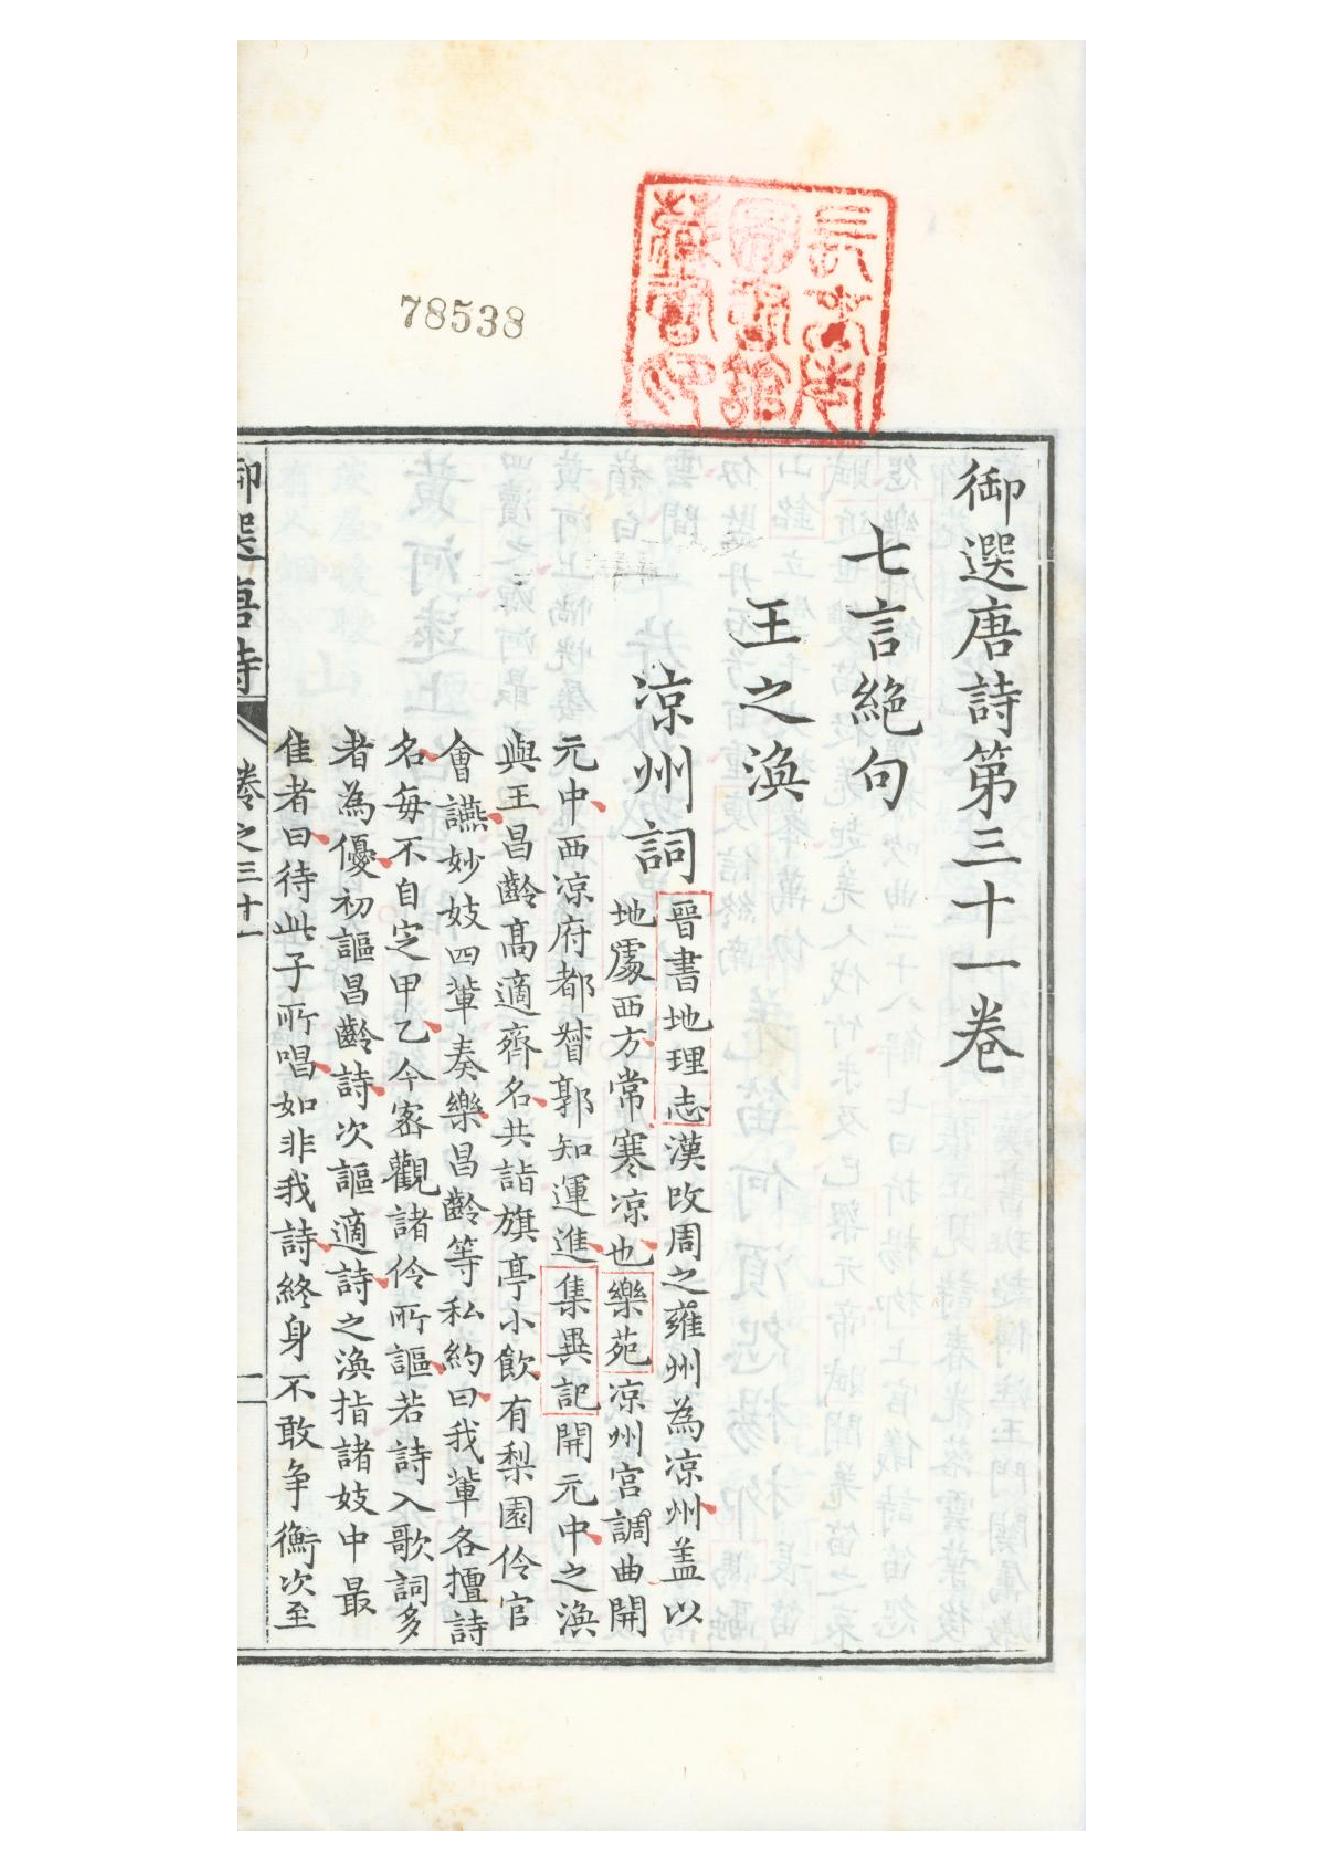 御選唐詩第三十一卷
七言絕句
王之渙
涼州詞
晉書地理志漢改周之雍州為涼州蓋以
地處西方常寒涼也樂苑涼州宮調曲開
元中西涼府都督郭知運進集異記開元中之渙
與王昌齡高適齊名共詣旗亭小飲有梨園伶官
會讌妙妓四輩奏樂昌齡等私約曰我輩各擅詩
名每不自定甲乙今密觀諸伶所謳若詩入歌詞多
者為優初謳昌齡詩次謳適詩之渙指諸妓中最
佳者曰待此子所唱如非我詩終身不敢爭衡次至
御選唐詩 卷之三十一 一
長春市圖書館藏書印
78538